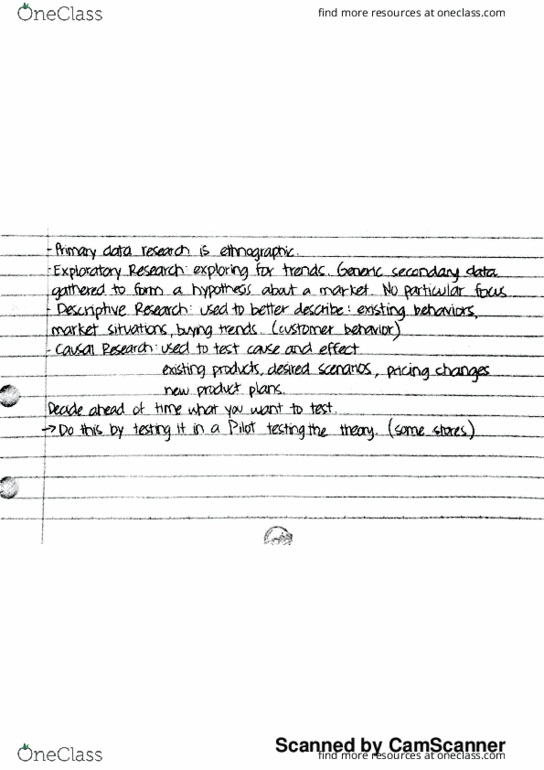 OneClass
find more resources at oneclass.com
- Primary data research is ethnographic.
- Exploratory Research: exploring for trends. Generic secondary data
gathered to form a hypothesis about a market. No particular focus
- Descriptive Research: used to better describe: existing behaviors,
market situations, buying trends. (customer behavior)
- Causal Research: used to test cause and effect
existing products, desired scenarios, pricing changes
new product plans.
Decide ahead of time what you want to test.
→ Do this by testing it in a Pilot testing the theory. (some stores)
Scanned by CamScanner
OneClass
find more resources at oneclass.com